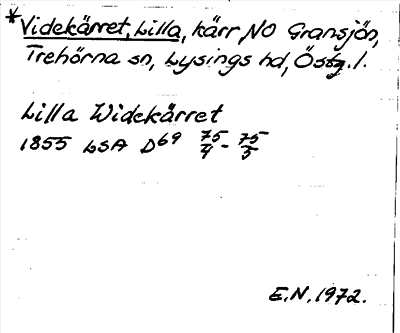 *Videkärret, Lilla, kärr NO Gransjön,
Trehörna sn, Lysings hd, Östg. l.
Lilla Widekärret
1855 LSA D69 75/4 - 75/5
E.N. 1972.